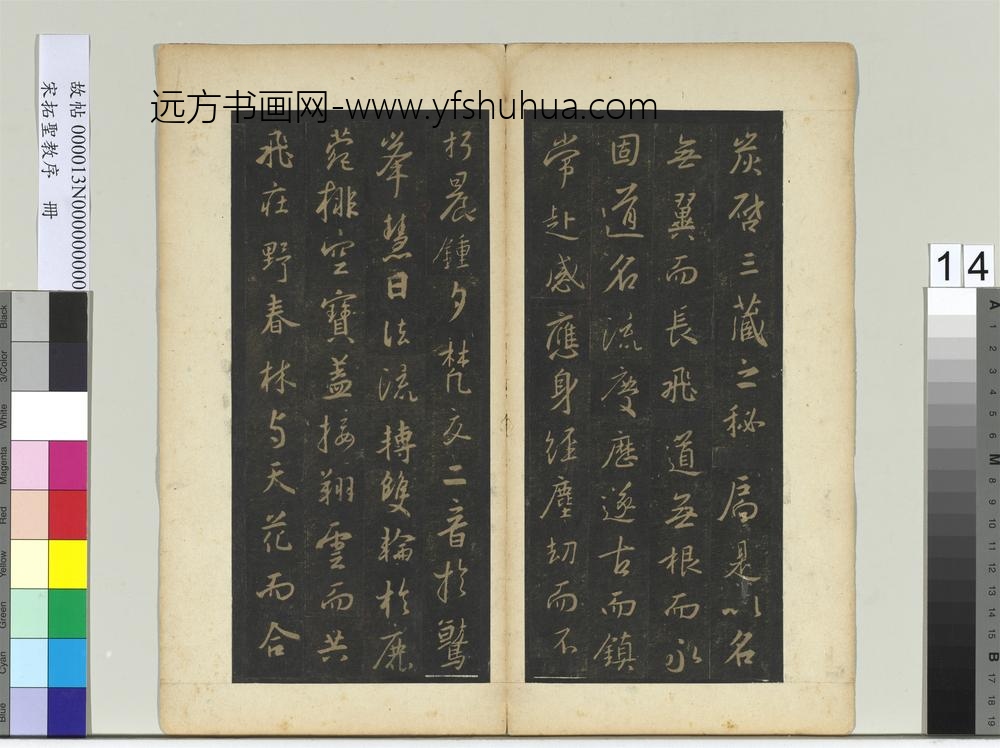 远方书画网-www.yfshuhua.com
炭啓三藏之秘扃是以名
無翼而長飛道無根而永
固道名流慶歷遂古而鎮
常赴感應身經塵劫而不
朽晨鍾夕梵交二音於鷲
峯慧日法流轉雙輪於鹿
菀排空寶蓋接翔雲而共
飛莊野春林与天花而合
故帖 000013N00000000
宋拓聖教序 冊
14
Black
3/Color
White
Magenta
Red
Yellow
Green
Cyan
Blue
A
1
2
3
4
5
6
M
8
9
10
11
12
13
14
15
B
17
18
19